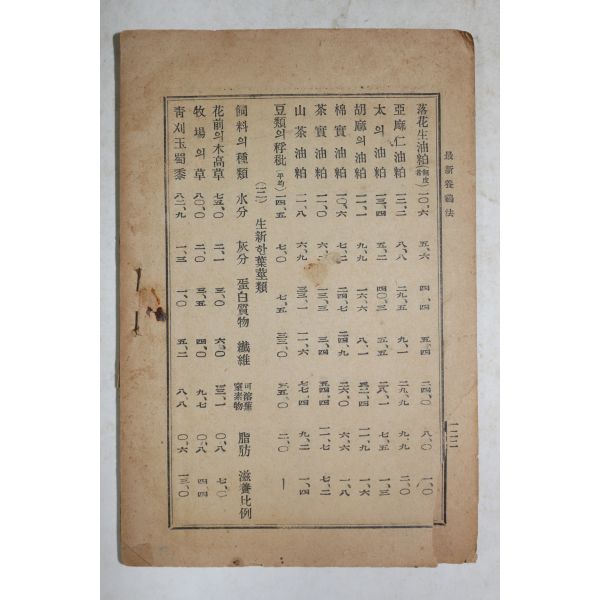 最新養鷄法
一二二
落花生油粕 一〇、六 五、六 四、四 五、四 二四、〇 八、〇 一、〇
亞麻仁油粕 一二、二 八、八 二九、五 九、一 二九、九 九、九 二、〇
太의油粕 一三、四 五、二 四〇、三 五、五 二八、一 七、五 一、三
胡麻의油粕 一一、一 九、九 一六、六 八、一 一一、九 一、六
棉實油粕 一〇、六 七、二 二四、七 二四、九 二六、〇 六、六 一、八
茶實油粕 一一、〇 六、二 一三、三 三、四 五四、四 一一、七 七、二
山茶油粕 一一、八 六、九 三三、一 一一、六 七七、四 九、二 一、四
豆類의稃秕(平均) 一四、五 七、〇 七、五 三三、〇 三五、〇 二、〇 ー
(二) 生新한葉莖類
飼料의種類 水分 灰分 蛋白質物 纖維 可溶無窒素物 脂肪 滋養比例
花前의木高草 七五、〇 二、一 三、〇 六、〇 一三、一 〇、八 七、〇
牧場의草 八〇、〇 二、〇 三、五 四、〇 九、七 〇、八 四、四
靑刈玉蜀黍 八二、九 一、三 一、〇 五、二 八、八 〇、六 一三、〇